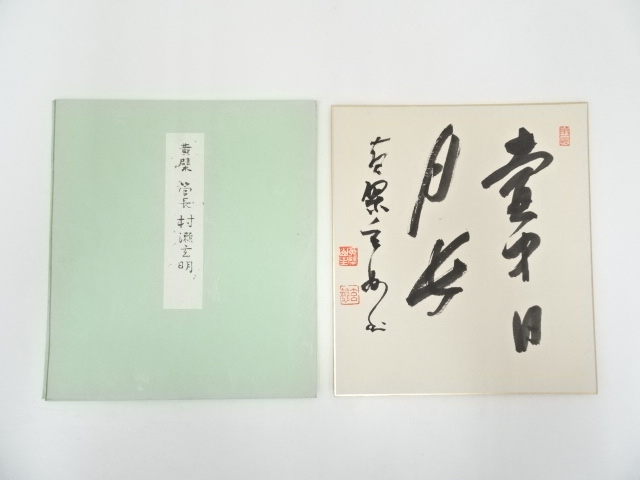 黄檗 管長 村瀬玄明
壺中日
月長
黄檗玄妙書